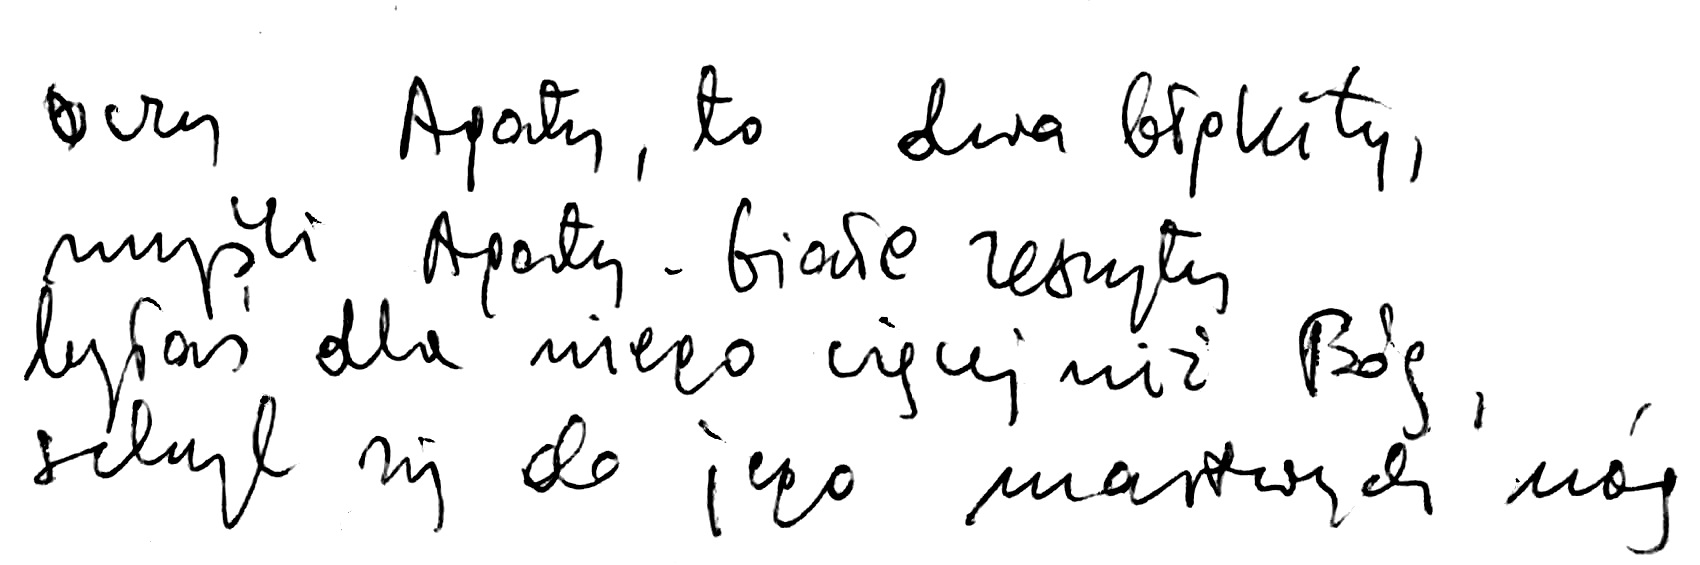 oczy Agaty, to dwa błękity,
myśli Agaty - białe zeszyty
byłaś dla niego więcej niż Bóg,
schyl się do jego martwych nóg